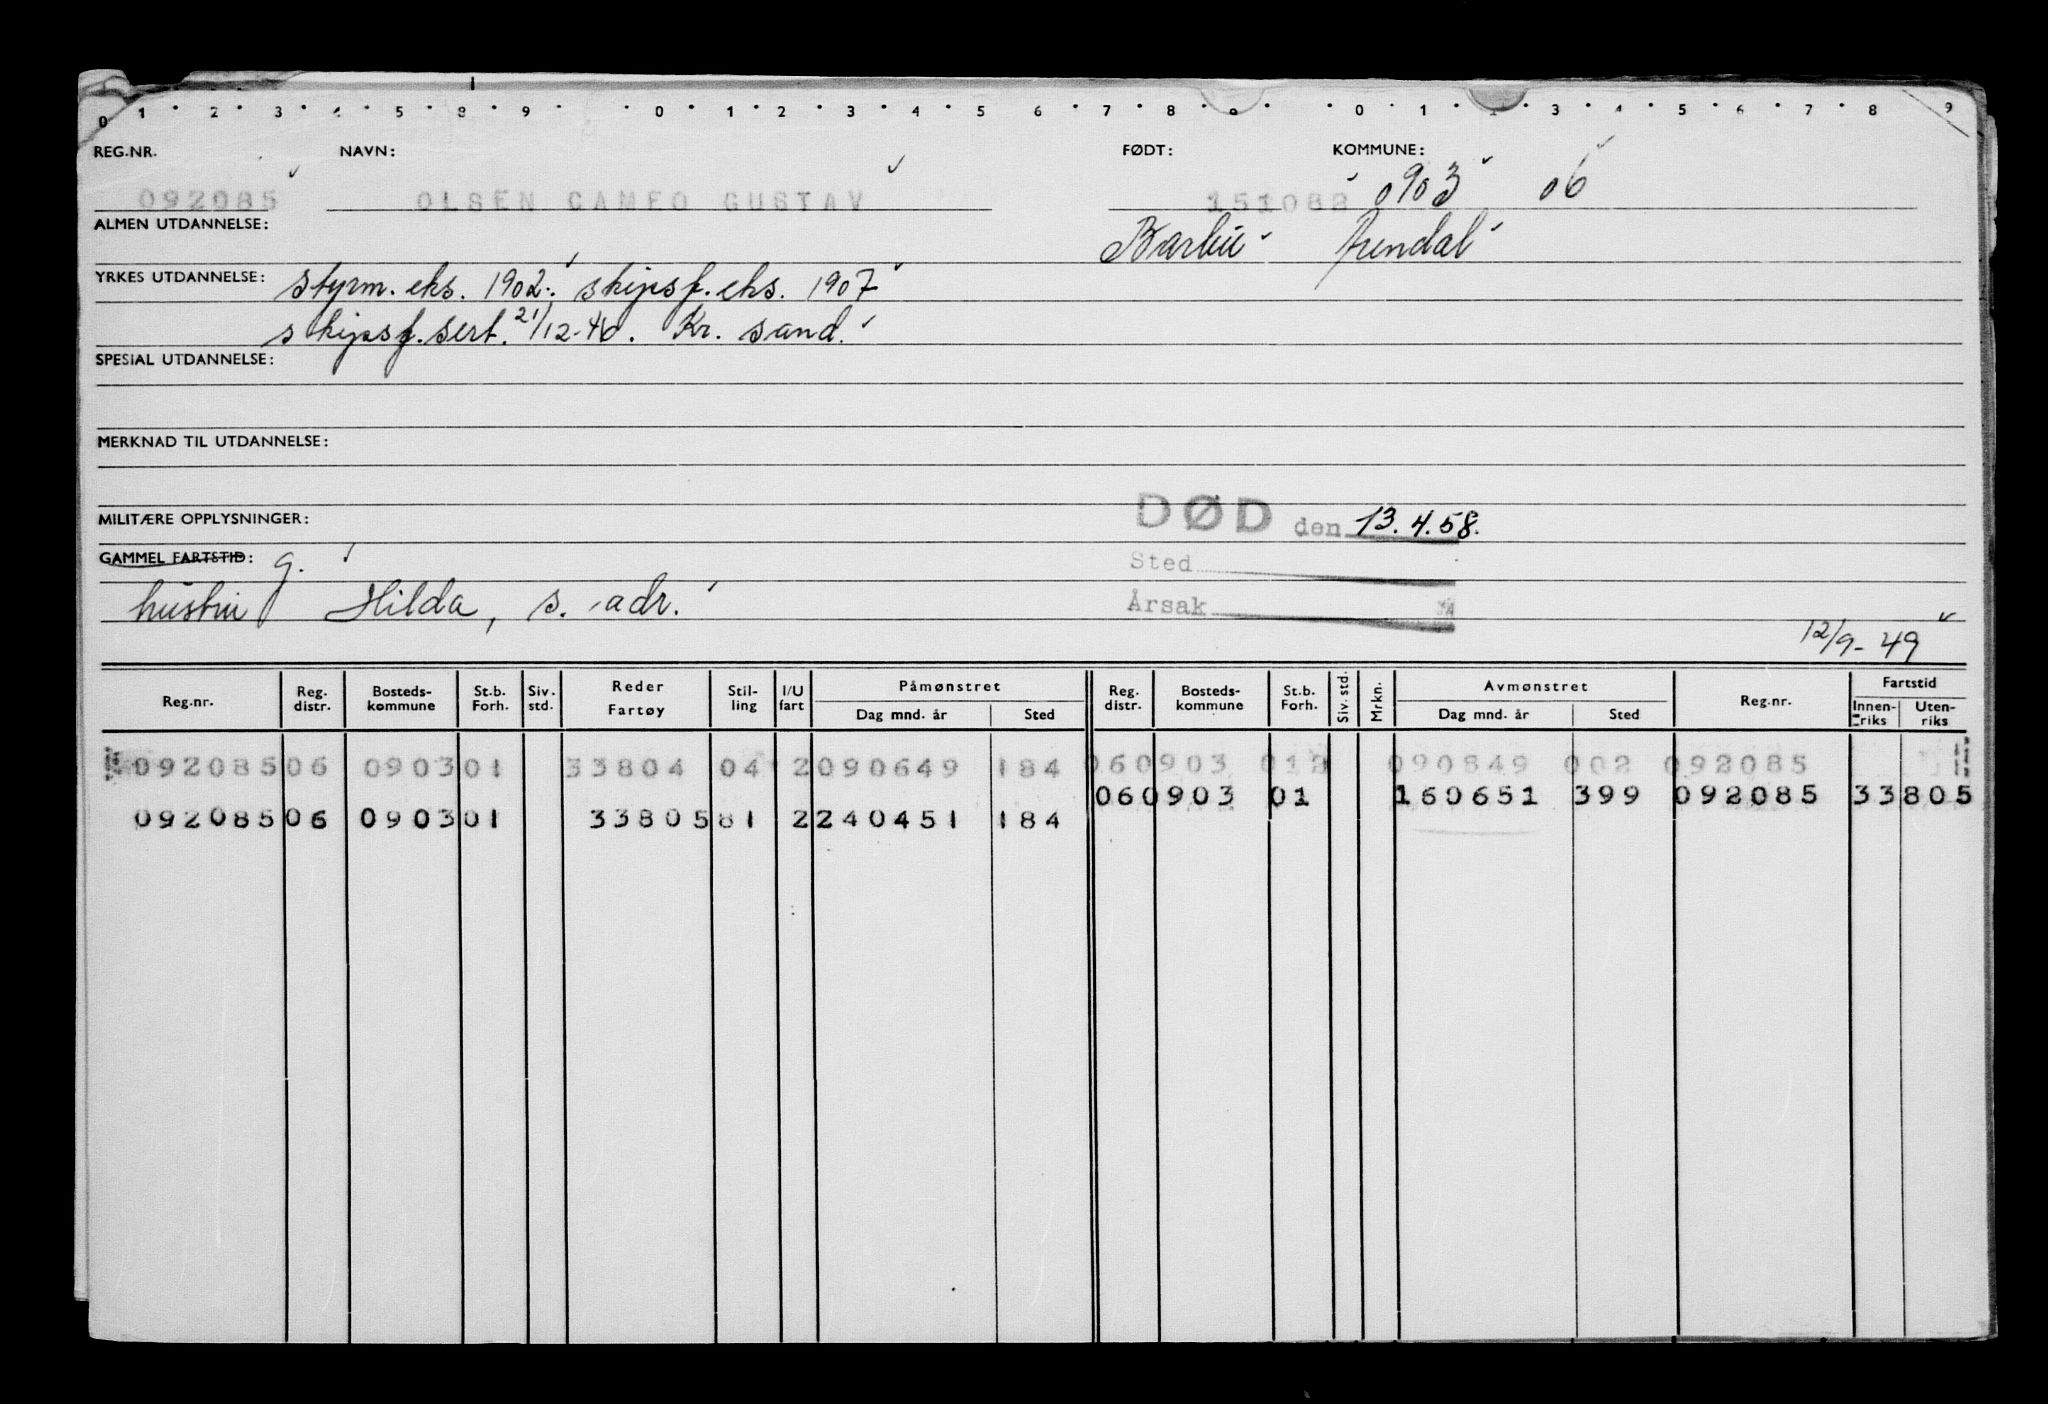 0 1 2 3 4 5 8 9 0 1 2 3 4 5 6 7 8 9 0 1 2 3 4 5 6 7 8 9
REG.NR. NAVN: FØDT: KOMMUNE:
092085 OLSEN CAMEO GUSTAV 151082 0903 06
ALMEN UTDANNELSE: Barbu Arendal
YRKES UTDANNELSE: styrm. eks. 1902. skipsf. eks. 1907
skipsf. sert. 21/12-40. Kr. sand.
SPESIAL UTDANNELSE:
MERKNAD TIL UTDANNELSE:
MILITÆRE OPPLYSNINGER: DØD den 13.4.58.
GAMMEL FARTSTID: g. Sted
hustru Hilda, s. adr. Årsak
12/9-49
Reg.nr. Reg. distr. Bosteds-kommune St.b. Forh. Siv. std. Reder Fartøy Stil-ling I/U fart Påmønstret Dag mnd. år Sted Reg. distr. Bosteds-kommune St.b. Forh. Siv. std. Mrkn. Avmønstret Dag mnd. år Sted Reg.nr. Fartstid Innen-riks Uten-riks
092085 06 0903 01 33804 04 2 090649 184 06 0903 01 090849 002 092085
06 0903 01 160651 399 092085 33805
092085 06 0903 01 33805 81 2 240451 184